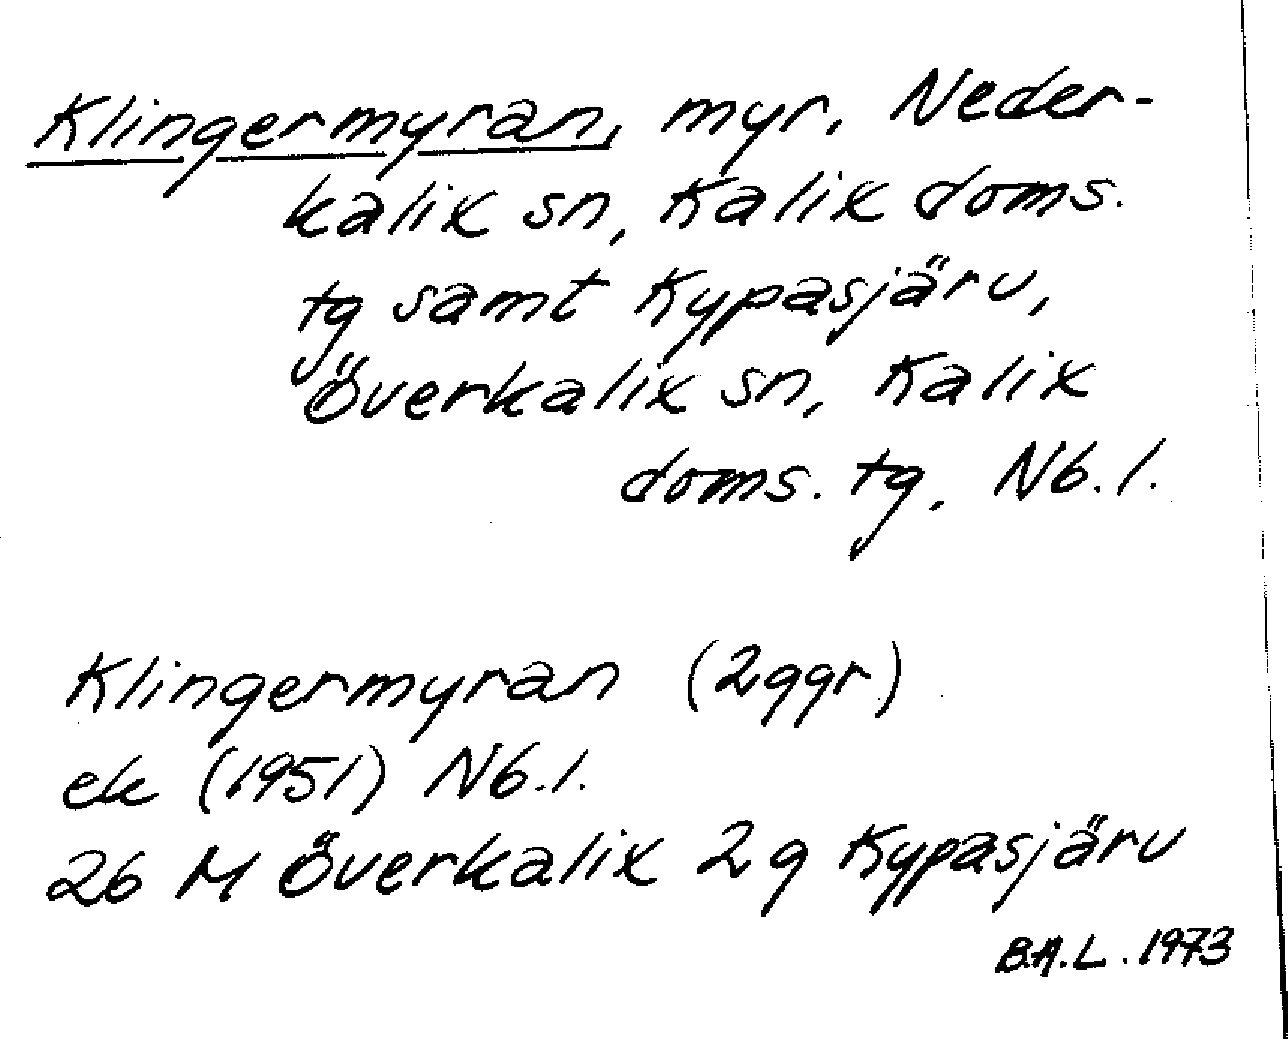 Klingermyran, myr, Neder-
kalix sn, Kalix doms.
tg samt Kypasjärv,
Överkalix sn, Kalix
doms. tg, Nb. l.
Klingermyran (2 ggr)
ek (1951) Nb. l.
26 M Överkalix 2 g Kypasjärv
B.A.L. 1973